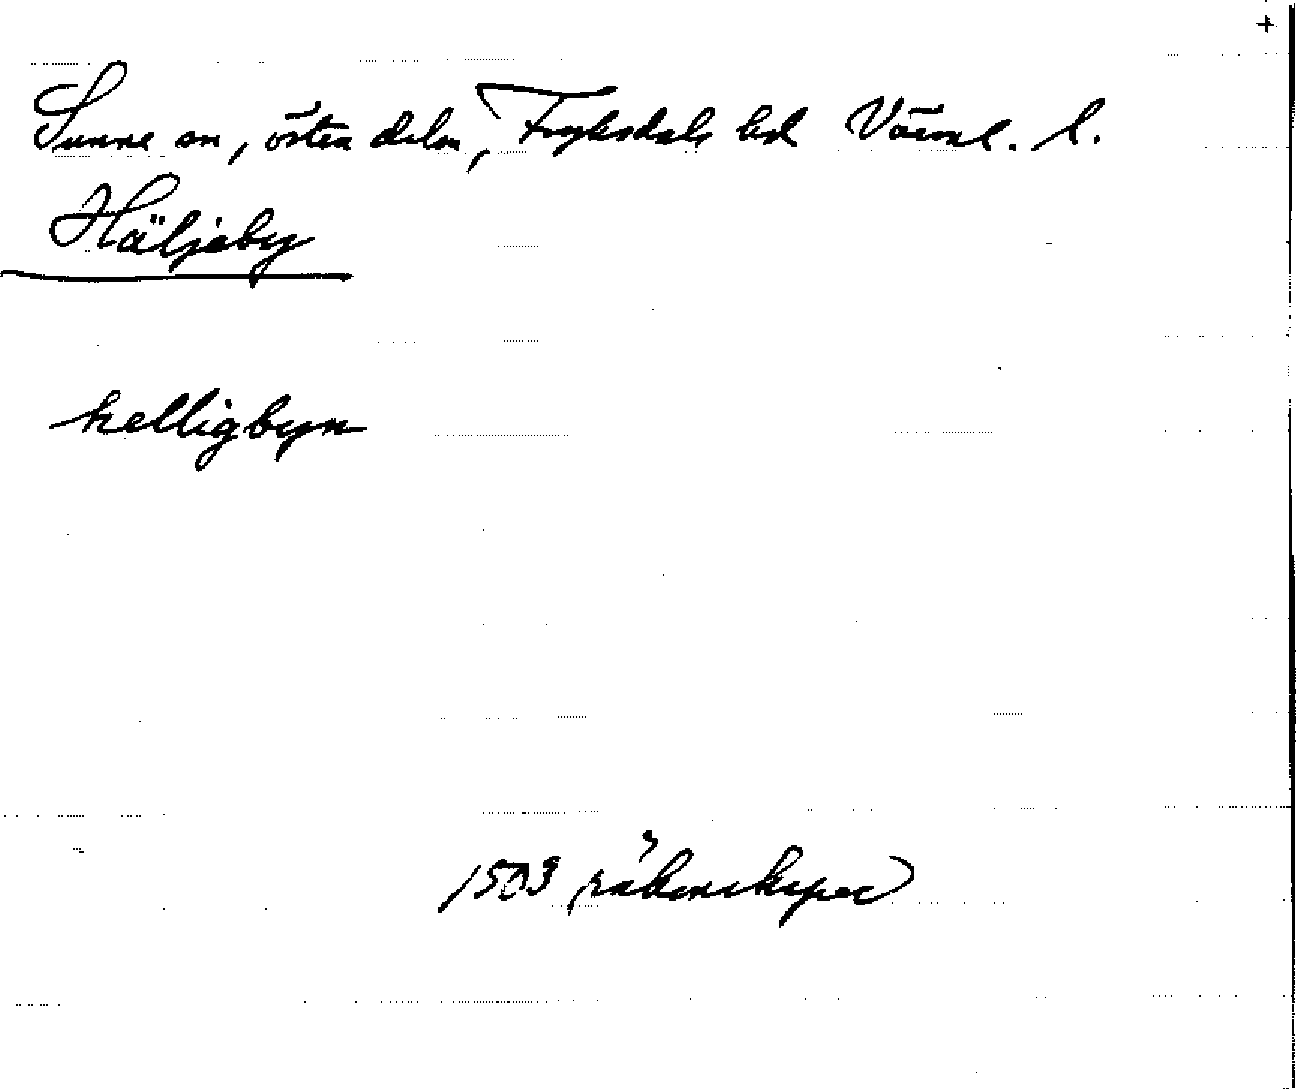 +
Sunne sn, östra delen, Fryksdals hd Värml. l.
Häljeby
helligbyn
1503 räkenskaper